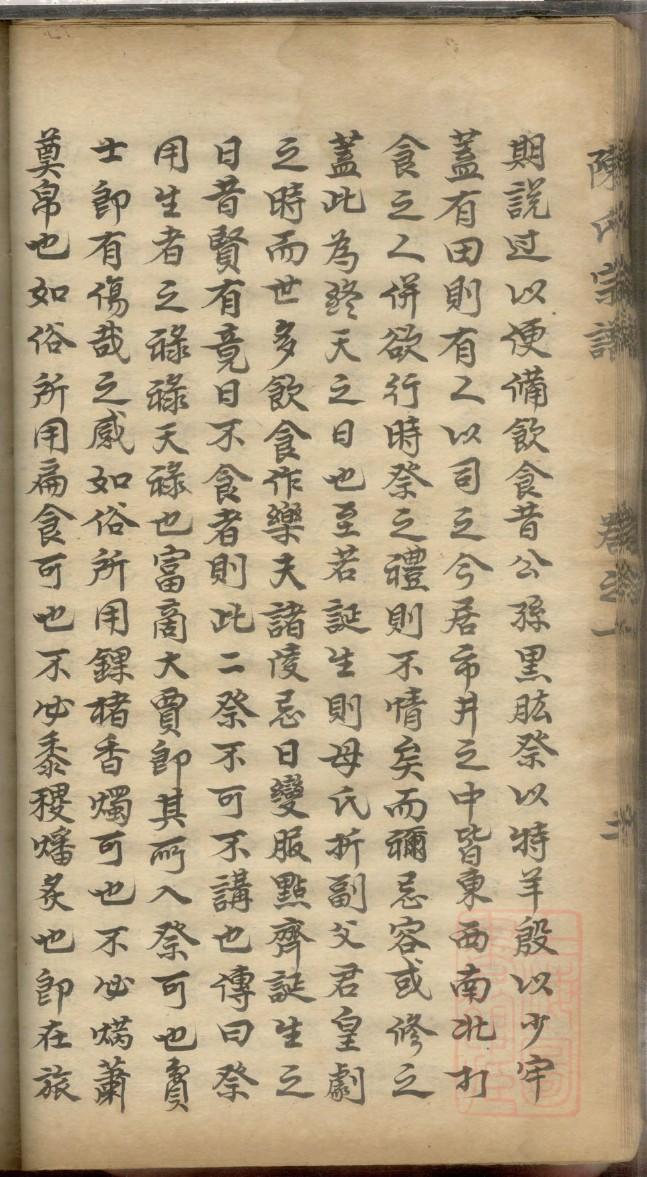 陳氏宗譜 卷之一 二
期說过以便備飲食昔公孫黑肱祭以特羊殷以少牢
蓋有田則有人以司之今居市井之中皆東西南北打
食之人併欲行時祭之禮則不情矣而禰忌容或修之
蓋此為終天之日也至若誕生則母氏折副父君皇劇
之時而世多飲食作樂夫諸陵忌日變服點齊誕生之
日昔賢有竟日不食者則此二祭不可不講也傳曰祭
用生者之祿祿天祿也富商大賈即其所入祭可也貧
士即有傷哉之感如俗所用錁楮香燭可也不必焫蕭
奠帛也如俗所用扁食可也不必黍稷燔炙也即在旅